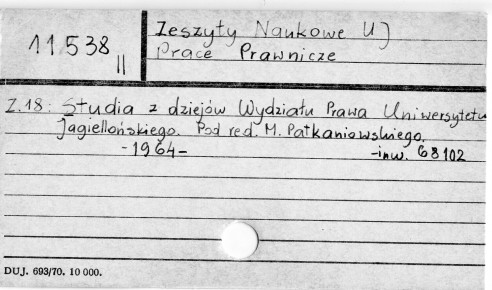 11538
II
Zeszyty Naukowe UJ
Prace Prawnicze
Z.18: Studia z dziejów Wydziału Prawa Uniwersytetu
Jagiellońskiego. Pod red. M. Patkaniowskiego.
-1964-
-inw. 68102
DUJ. 693/70. 10 000.